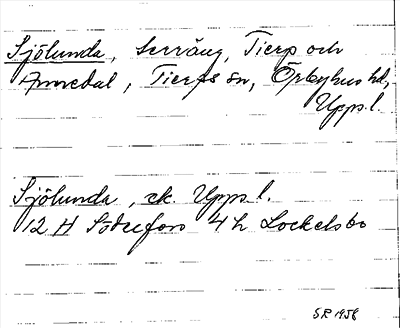 Sjölunda, Terräng, Tierp och
Annedal, Tierps sn, Örbyhus hd,
Upps.l.
Sjölunda, ek. Upps.l.
12 H Söderfors 4 h Lockelsbo
SR 1958